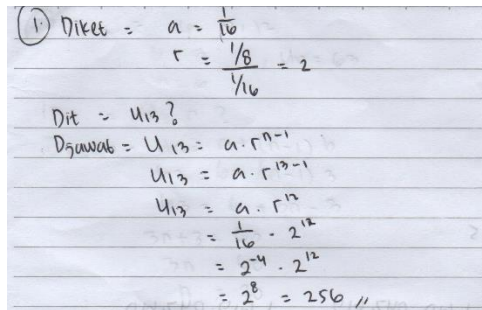 1. Diket = a = 1/16
r = 1/8 / 1/16 = 2
Dit = U13?
Djawab = U13 = a . r^n-1
U13 = a . r^13-1
U13 = a . r^12
= 1/16 . 2^12
= 2^-4 . 2^12
= 2^8 = 256 //